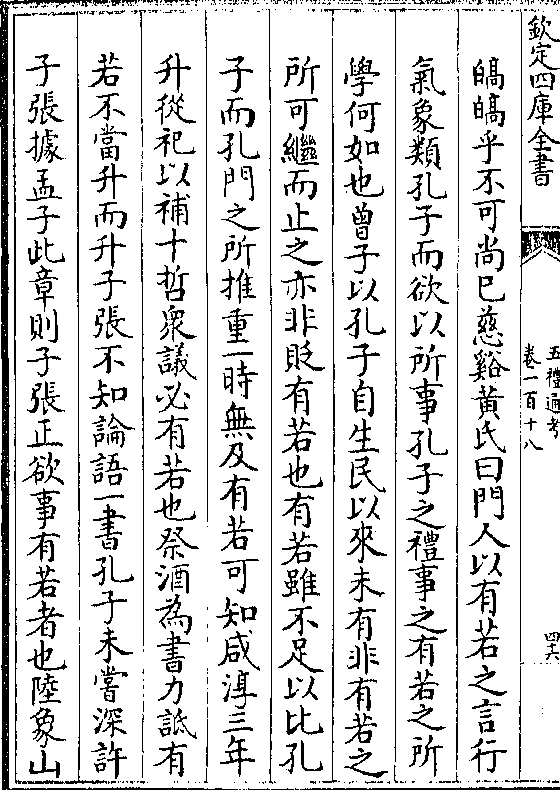 欽定四庫全書
五禮通考
卷一百十八
四六
皜皜乎不可尚已慈谿黄氏曰門人以有若之言行
氣象類孔子而欲以所事孔子之禮事之有若之所
學何如也曾子以孔子自生民以來未有非有若之
所可繼而止之亦非貶有若也有若雖不足以比孔
子而孔門之所推重一時無及有若可知咸淳三年
升從祀以補十哲衆議必有若也祭酒為書力詆有
若不當升而升子張不知論語一書孔子未嘗深許
子張據孟子此章則子張正欲事有若者也陸象山